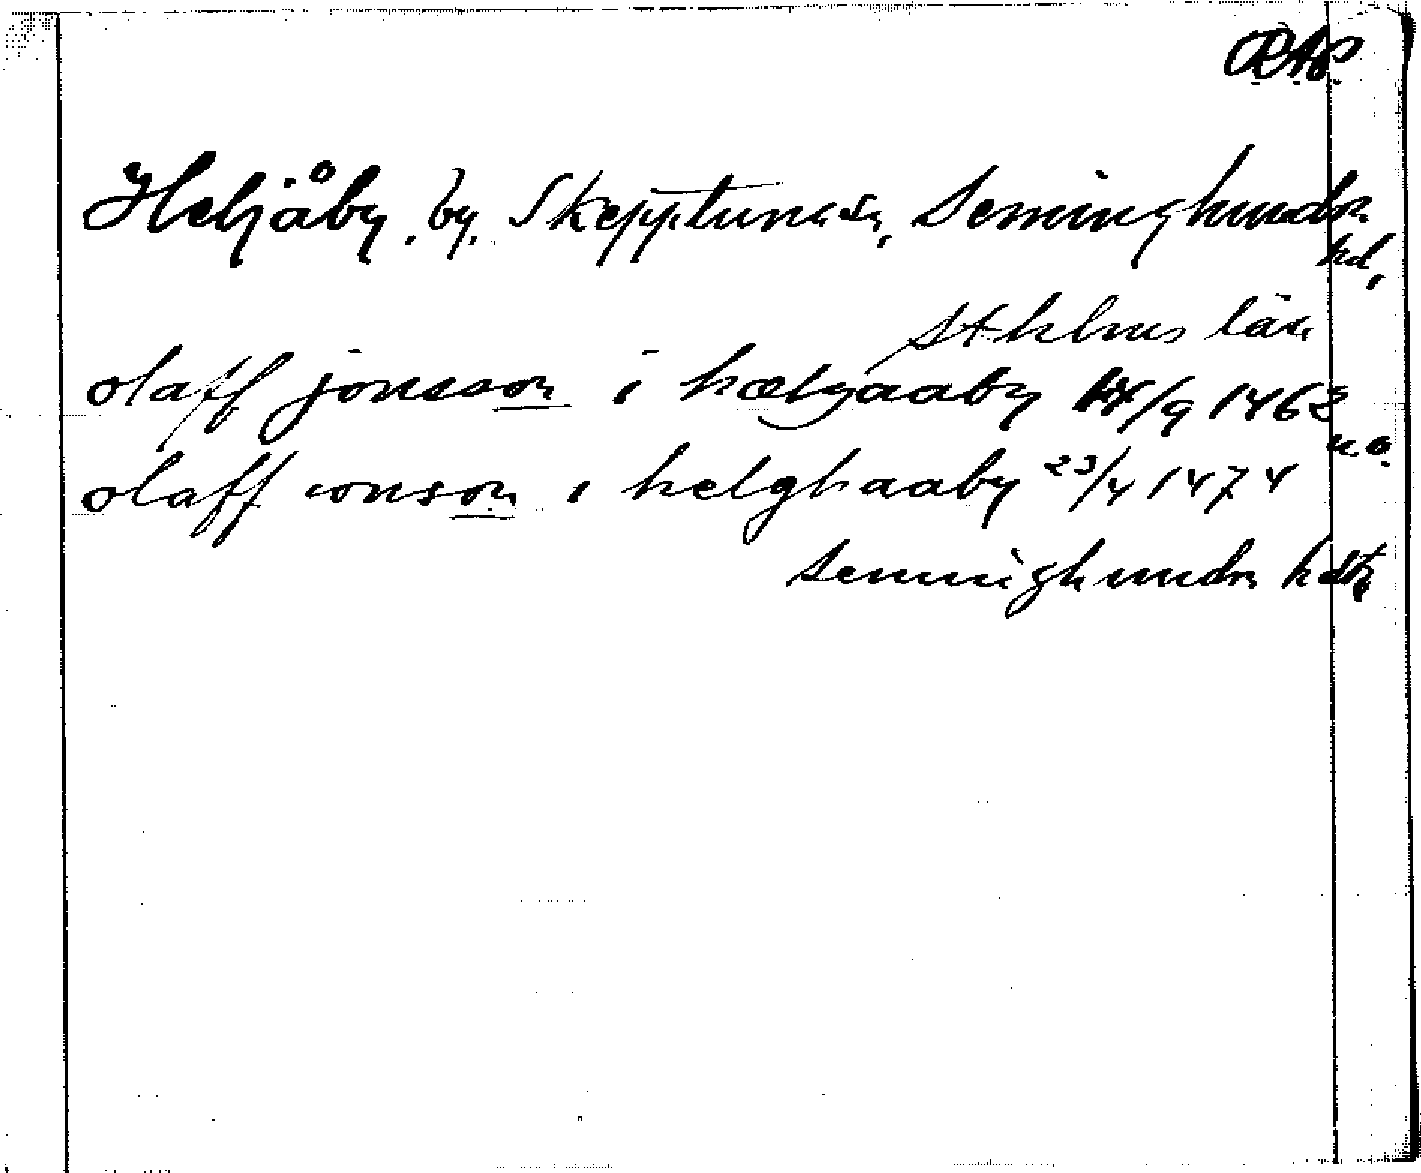 RAp
Heljåby, by, Skepptuna sn, Seminghundr.
hd,
Sthlms län
olaff jonsson i hælgaaby 14/9 1462
u.o.
olaff ionson i helghaaby 23/4 1474
Seminghundr hdtg